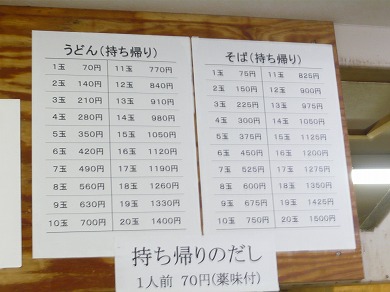 うどん(持ち帰り)
1玉 70円 11玉 770円
2玉 140円 12玉 840円
3玉 210円 13玉 910円
4玉 280円 14玉 980円
5玉 350円 15玉 1050円
6玉 420円 16玉 1120円
7玉 490円 17玉 1190円
8玉 560円 18玉 1260円
9玉 630円 19玉 1330円
10玉 700円 20玉 1400円
そば(持ち帰り)
1玉 75円 11玉 825円
2玉 150円 12玉 900円
3玉 225円 13玉 975円
4玉 300円 14玉 1050円
5玉 375円 15玉 1125円
6玉 450円 16玉 1200円
7玉 525円 17玉 1275円
8玉 600円 18玉 1350円
9玉 675円 19玉 1425円
10玉 750円 20玉 1500円
持ち帰りのだし
1人前 70円(薬味付)